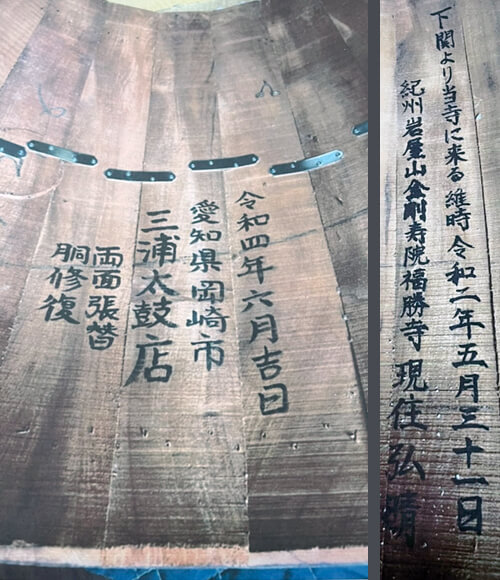 令和四年六月吉日
愛知県岡崎市
三浦太鼓店
両面張替
胴修復
下関より当寺に来る 維時令和二年五月三十一日
紀州岩屋山金剛寿院福勝寺 現住弘晴